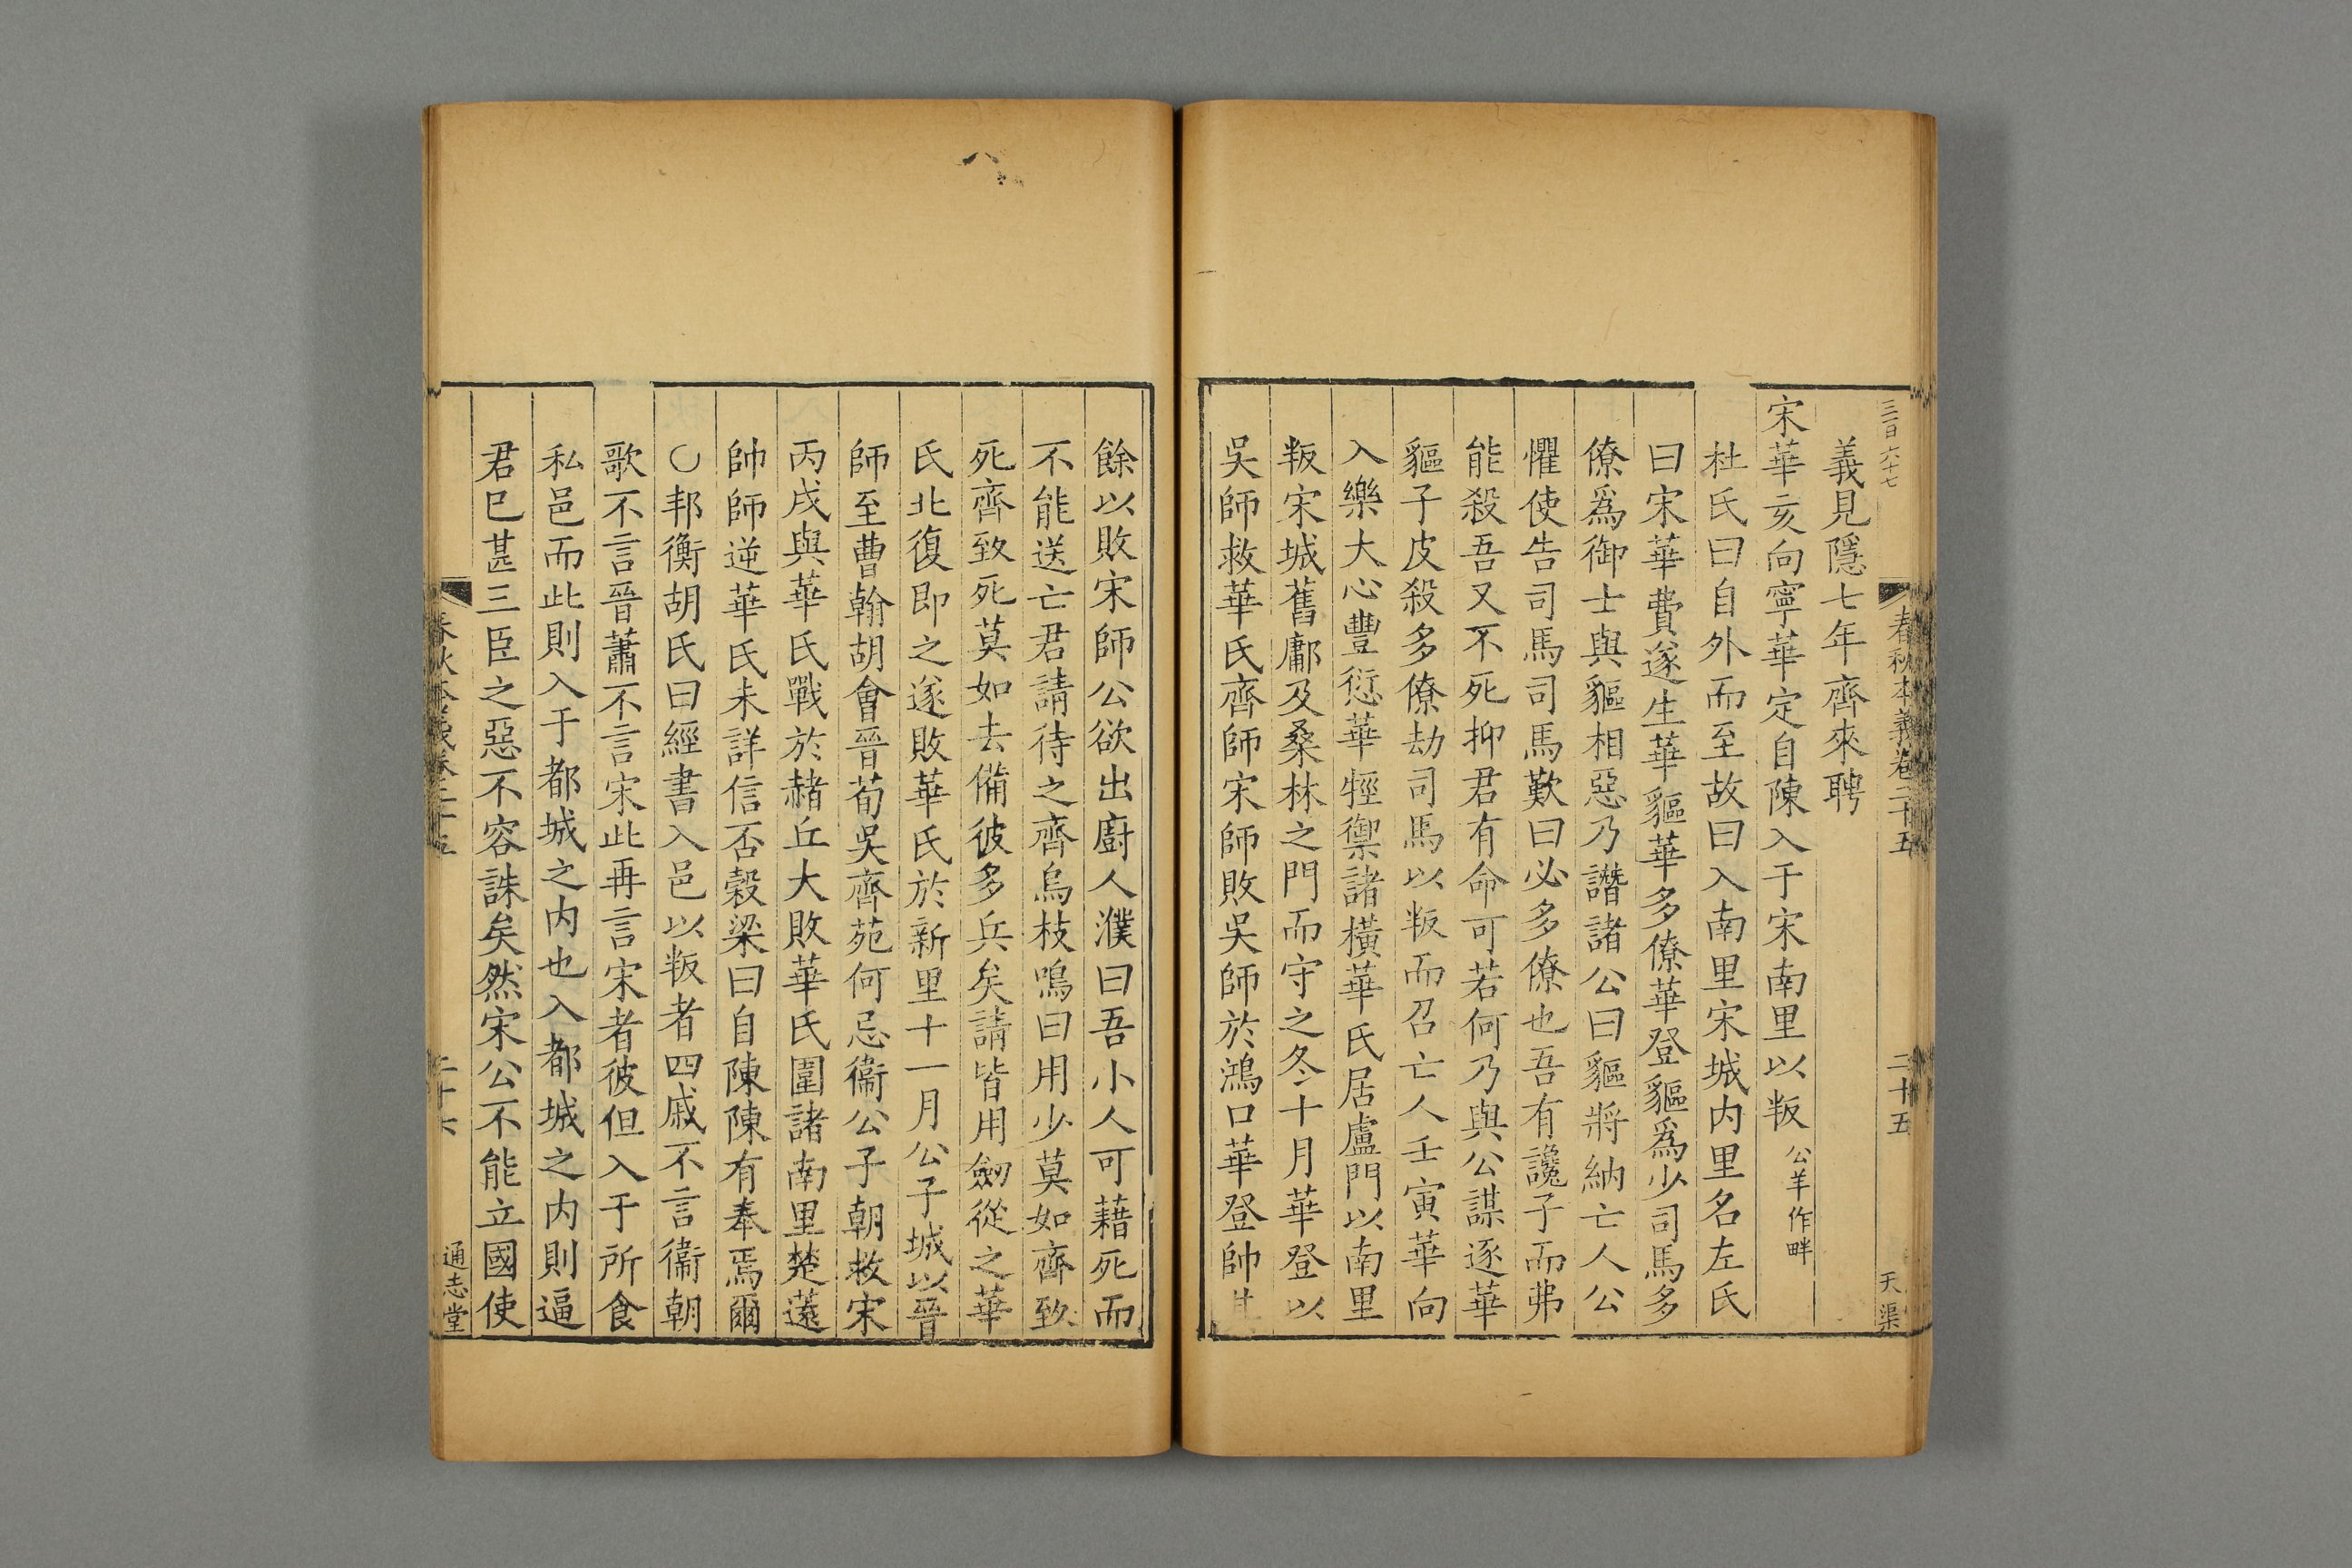 三百六十七
春秋本義卷二十五
二十五
天渠
義見隱七年齊來聘
宋華亥向寧華定自陳入于宋南里以叛公羊作畔
杜氏曰自外而至故曰入南里宋城内里名左氏
曰宋華費遂生華貙華多僚華登貙爲少司馬多
僚爲御士與貙相惡乃譖諸公曰貙將納亡人公
懼使告司馬司馬歎曰必多僚也吾有讒子而弗
能殺吾又不死抑君有命可若何乃與公謀逐華
貙子皮殺多僚劫司馬以叛而召亡人壬寅華向
入樂大心豐愆華牼禦諸橫華氏居盧門以南里
叛宋城舊鄘及桑林之門而守之冬十月華登以
吳師救華氏齊師宋師敗吳師於鴻口華登帥其
餘以敗宋師公欲出廚人濮曰吾小人可藉死而
不能送亡君請待之齊烏枝鳴曰用少莫如齊致
死齊致死莫如去備彼多兵矣請皆用劒從之華
氏北復即之遂敗華氏於新里十一月公子城以晉
師至曹翰胡會晉荀吳齊苑何忌衞公子朝救宋
丙戌與華氏戰於赭丘大敗華氏圍諸南里楚薳
帥師逆華氏未詳信否穀梁曰自陳陳有奉焉爾
○邦衡胡氏曰經書入邑以叛者四戚不言衞朝
歌不言晉蕭不言宋此再言宋者彼但入于所食
私邑而此則入于都城之内也入都城之内則逼
君已甚三臣之惡不容誅矣然宋公不能立國使
春秋本義卷二十五
二十六
通志堂